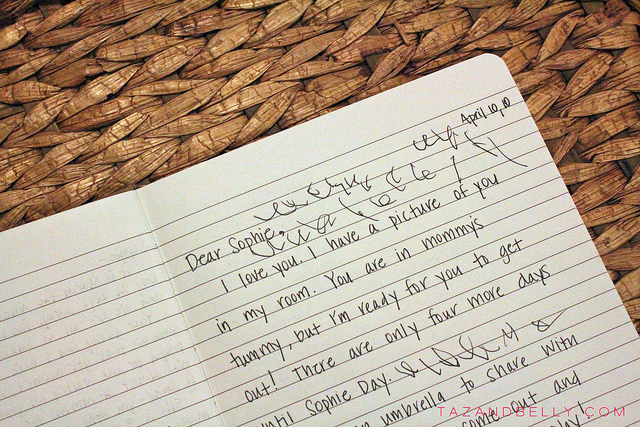 April 10, 10
Dear Sophie,
I love you. I have a picture of you
in my room. You are in mommy's
tummy, but I'm ready for you to get
out! There are only four more days
until Sophie Day.
umbrella to share with
come out and
TAZANDBELLY.COM